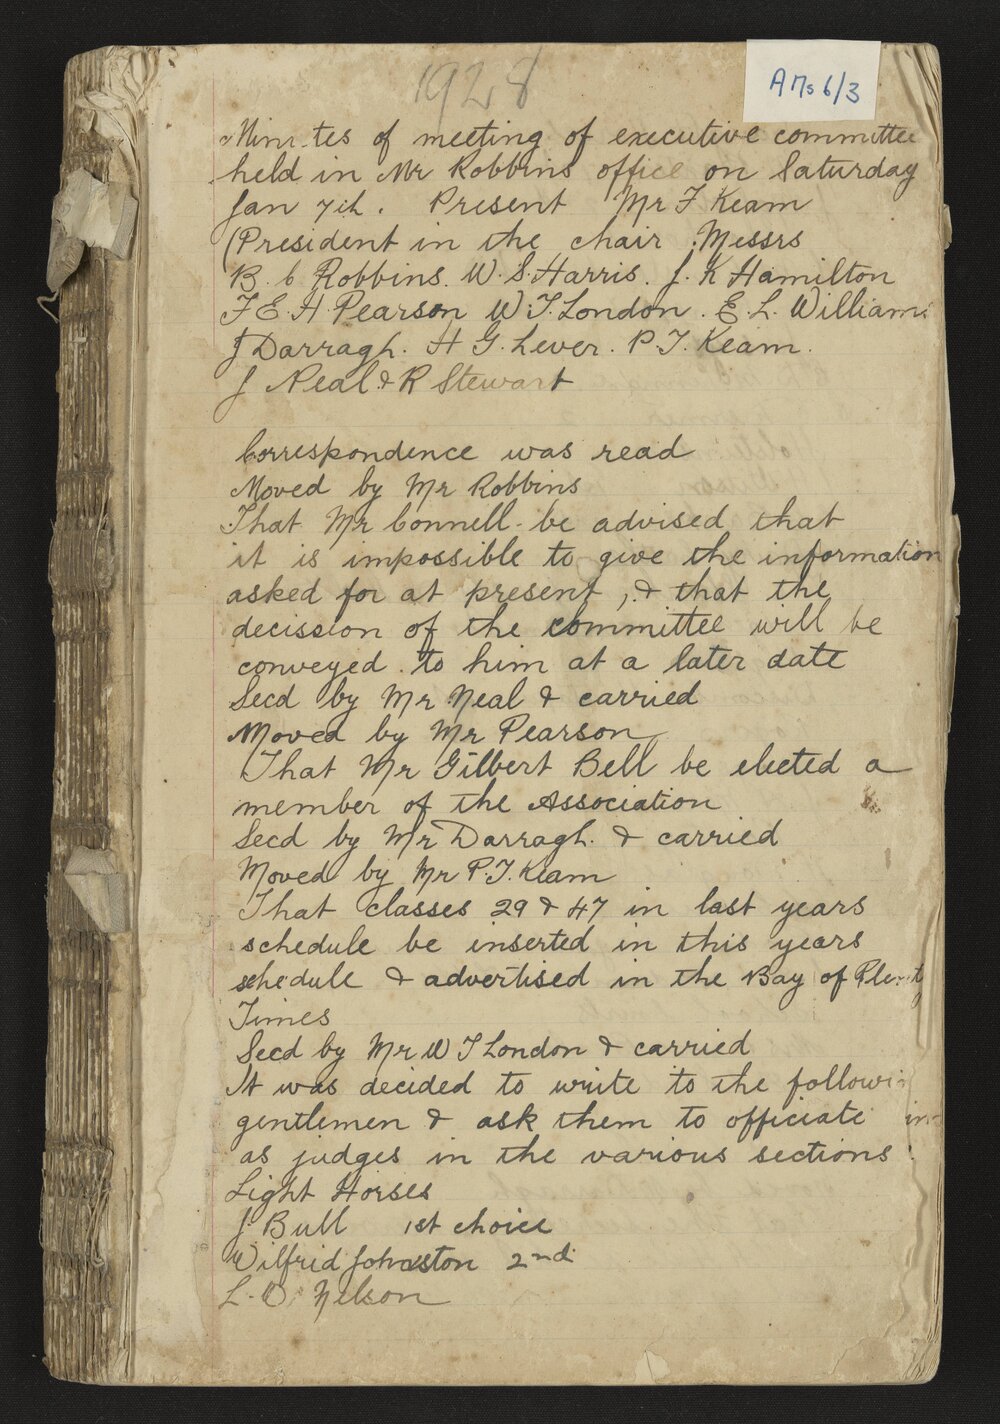 1928
A Ms 6/3
Minutes of meeting of executive committee
held in Mr Robbins office on Saturday
Jan 7th. Present Mr F Keam
(President in the chair. Messrs
B. C Robbins. W. S. Harris. J. K Hamilton
F E. H. Pearson W. T. London. E. L. Williams
J Darragh. H G. Lever. P. T. Keam.
J Neal & R Stewart
Correspondence was read
Moved by Mr Robbins
That Mr Connell be advised that
it is impossible to give the information
asked for at present, & that the
decission of the committee will be
conveyed to him at a later date
Secd by Mr Neal & carried
Moved by Mr Pearson
That Mr Gilbert Bell be elected a
member of the Association
Secd by Mr Darragh. & carried
Moved by Mr P. T. Keam
That classes 29 & 47 in last years
schedule be inserted in this years
schedule & advertised in the Bay of Plenty
Times
Secd by Mr W T London & carried
It was decided to write to the following
gentlemen & ask them to officiate
as judges in the various sections
Light Horses
J Bull 1st choice
Wilfrid Johnston 2nd
L. Nelson